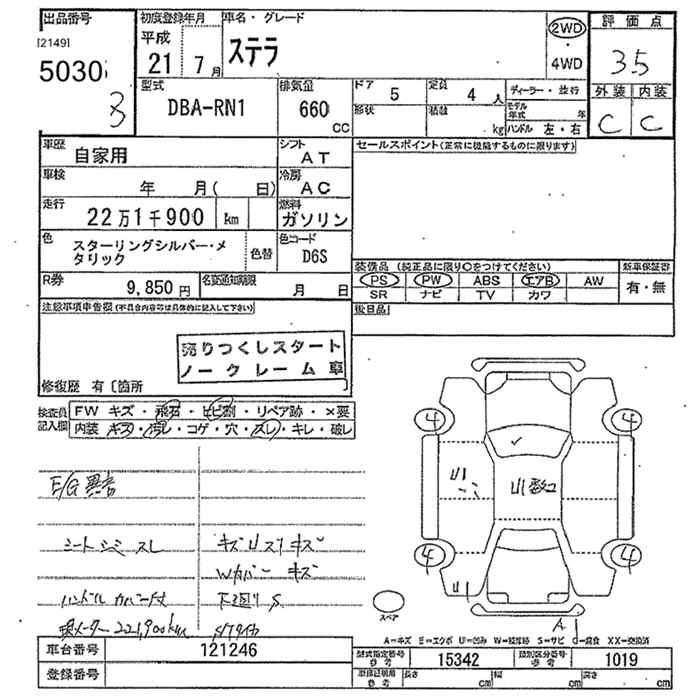 出品番号 初度登録年月 車名・グレード 2WD・4WD 評価点
[2149]
5030 8
平成 21 7月 ステラ 3.5
型式 DBA-RN1 排気量 660 CC
ドア 5 定員 4人 ディーラー・並行
形状 積載 kg モデル年式 年 ハンドル 左・右
外装 内装
C C
車歴 自家用 シフト AT
車検 年 月( 日) 冷房 AC
走行 22万1千900 km 燃料 ガソリン
色 スターリングシルバー・メタリック 色替 色コード D6S
R券 9,850円 名変通知期限 月 日
セールスポイント(正常に機能するものに限ります)
装備品 (純正品に限り○をつけてください) 新車保証書
PS PW ABS エアB AW 有・無
SR ナビ TV カワ
後日品
注意事項申告欄(不具合内容等は具体的に記入して下さい)
売りつくしスタート
ノークレーム車
修復歴 有〔箇所
検査員記入欄
FW キズ・飛石・ヒビ割・リペア跡・×要
内装 キズ・汚レ・コゲ・穴・スレ・キレ・破レ
E/G異音
シートシミ スレ キズ U スリキズ
Wカバー キズ
ハンドルカバー付 下廻り S
現メーター 221,900km
4 4
U
4 4
U
A
スペア
A=キズ E=エクボ U=凹み W=補修跡 S=サビ C=腐食 XX=交換済
車台番号 121246
登録番号
型式指定番号 参考 15342 類別区分番号 参考 1019
参考 長さ cm 幅 cm 高さ cm